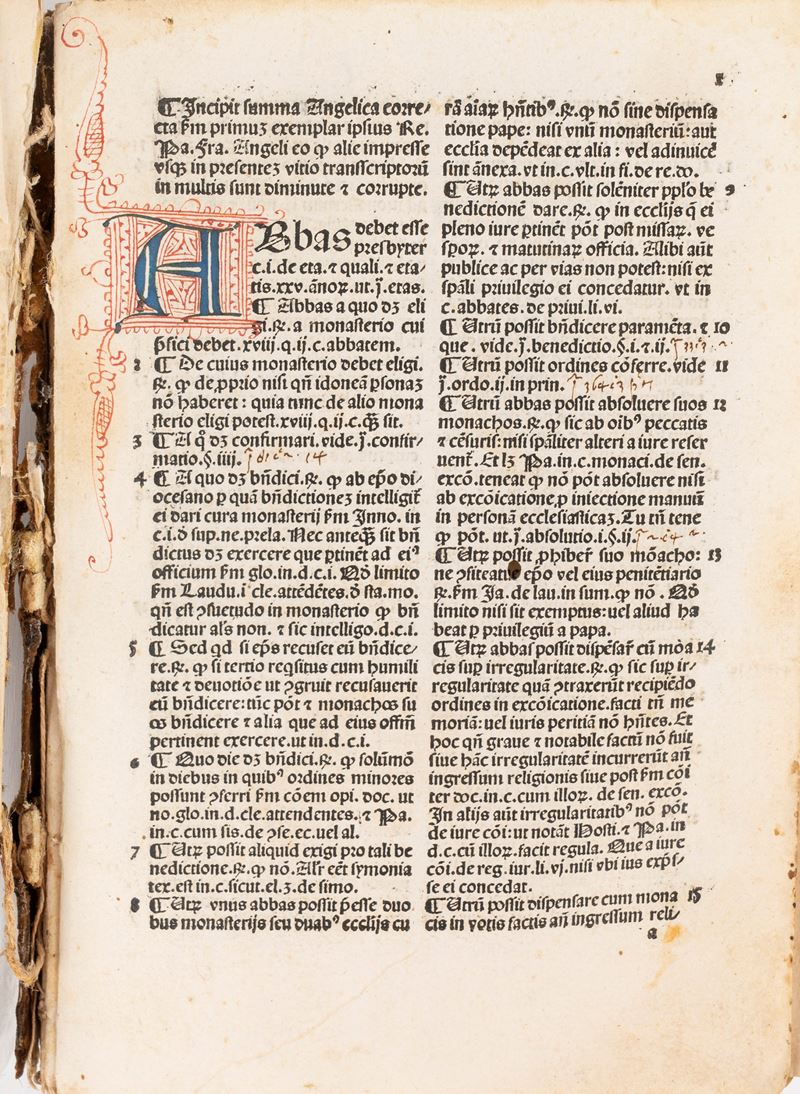 1
¶ Incipit summa Angelica corre/
cta ẜm primuȝ exemplar ipsius Re.
Pa. Fra. Angeli eo ꝙ alie impresse
vsqȝ in presenteȝ vitio transscriptorū
in multis sunt diminute ⁊ corrupte.
ABbas debet esse
presbyter
c.i.de eta.⁊ quali.⁊ eta/
tis.xxv.ānoꝝ.ut.j̄.etas.
¶ Abbas a quo dȝ eli
gi.℞.a monasterio cui
p̄fici debet.xviij.q.ij.c.abbatem.
2 ¶ De cuius monasterio debet eligi.
℞.ꝙ de ꝓprio nisi qn̄ idoneā ꝑsonaȝ
nō haberet : quia tunc de alio mona
sterio eligi potest.xviij.q.ij.c.qȝ̄ sit.
3 ¶ A q̊ dȝ confirmari.vide.j̄.confir/
matio.§.iiij.
4 ¶ A quo dȝ bn̄dici.℞.ꝙ ab ep̄o di/
ocesano ꝑ quā bn̄dictioneȝ intelligit̄
ei dari cura monasterij ẜm Inno. in
c.i.ō sup.ne.prela. Nec anteqȝ̄ sit bn̄
dictus dȝ exercere que ꝑtinēt ad eiꝰ
officium ẜm glo.in.d.c.i. Qō limito
ẜm Laudu.i cle.attēdētes.ō sta.mo.
qn̄ est ꝯsuetudo in monasterio ꝙ bn̄
dicatur al̄s non. ⁊ sic intelligo.d.c.i.
5 ¶ Sed qd si ep̄s recuset eū bn̄dice/
re.℞.ꝙ si tertio reqsitus cum humili
tate ⁊ deuotiōe ut ꝯgruit recusauerit
eū bn̄dicere:tūc pōt ⁊ monachos su
os bn̄dicere ⁊ alia que ad eius offm̄
pertinent exercere.ut in.d.c.i.
6 ¶ Quo die dȝ bn̄dici.℞.ꝙ solūmō
in diebus in quibꝰ ordines minores
possunt ꝯferri ẜm cōem opi. doc. ut
no.glo.in.d.cle.attendentes.⁊ Pa.
in.c.cum sis.de ꝯse.ec.uel al.
7 ¶ Utꝝ possit aliquid exigi pro tali be
nedictione.℞.ꝙ nō.Alr̄ eēt symonia
tex.est in.c.sicut.el.ȝ.de simo.
8 ¶ Utꝝ vnus abbas possit p̄esse duo
bus monasterijs seu duabꝰ ecclijs cu
rā aīaꝝ hn̄tibꝰ.℞.ꝙ nō sine dispensa
tione pape: nisi vnū monasteriū:aut
ecclīa depēdeat ex alia : vel adinuicē
sint ānexa.vt in.c.vlt.in fi.de re.do.
¶ Utꝝ abbas possit solēniter pplo be 9
nedictionē dare.℞. ꝙ in ecclijs q̄ ei
pleno iure ꝑtinēt pōt post missaꝝ. ve
sꝑoꝝ. ⁊ matutinaꝝ officia. Alibi aūt
publice ac per vias non potest:nisi ex
sp̄ali priuilegio ei concedatur. vt in
c.abbates.de priui.li.vi.
¶ Utrū possit bn̄dicere paramēta. ⁊ 10
que . vide.j̄.benedictio.§.i.⁊.ij.
¶ Utrū possit ordines cōferre.vide 11
j̄.ordo.ij.in prin.
¶ Utrū abbas possit absoluere suos 12
monachos.℞.ꝙ sic ab oībꝰ peccatis
⁊ cēsuris:nisi sp̄aliter alteri a iure reser
uent̄.Et lȝ Pa.in.c.monaci.de sen.
excō.teneat ꝙ nō pōt absoluere nisi
ab excōicatione,ꝓ iniectione manuū
in personā ecclesiasticaȝ.Tu tn̄ tene
ꝙ pōt. ut.j̄.absolutio.i.§.ij.
¶ Utꝝ possit ꝓhiber̄ suo mōacho: 13
ne ꝯfiteatur ep̄o vel eius penitētiario
℞.ẜm Ja.de lau.in sum.ꝙ nō . Qō
limito nisi sit exemptus:uel aliud ha
beat ꝑ priuilegiū a papa.
¶ Utꝝ abbas possit dispēsar̄ cū mōa 14
cis suꝑ irregularitate.℞.ꝙ sic suꝑ ir/
regularitate quā ꝯtraxerūt recipiēdo
ordines in excōicatione.facti tn̄ me
moriā:uel iuris peritiā nō hn̄tes.Et
hoc qn̄ graue ⁊ notabile factū nō fuit
siue hāc irregularitatē incurrerūt an̄
ingressum religionis siue post ẜm cōi
ter doc.in.c.cum illoꝝ. de sen. excō.
In alijs aūt irregularitatibꝰ nō pōt
de iure cōi:ut notāt Hosti.⁊ Pa.in
d.c.cū illoꝝ.facit regula. Que a iure
cōi.de reg.iur.li.vj.nisi vbi ius exp̄s/
se ei concedat.
¶ Utrū possit dispensare cum mona 15
cis in votis factis an̄ ingressum reli/
a